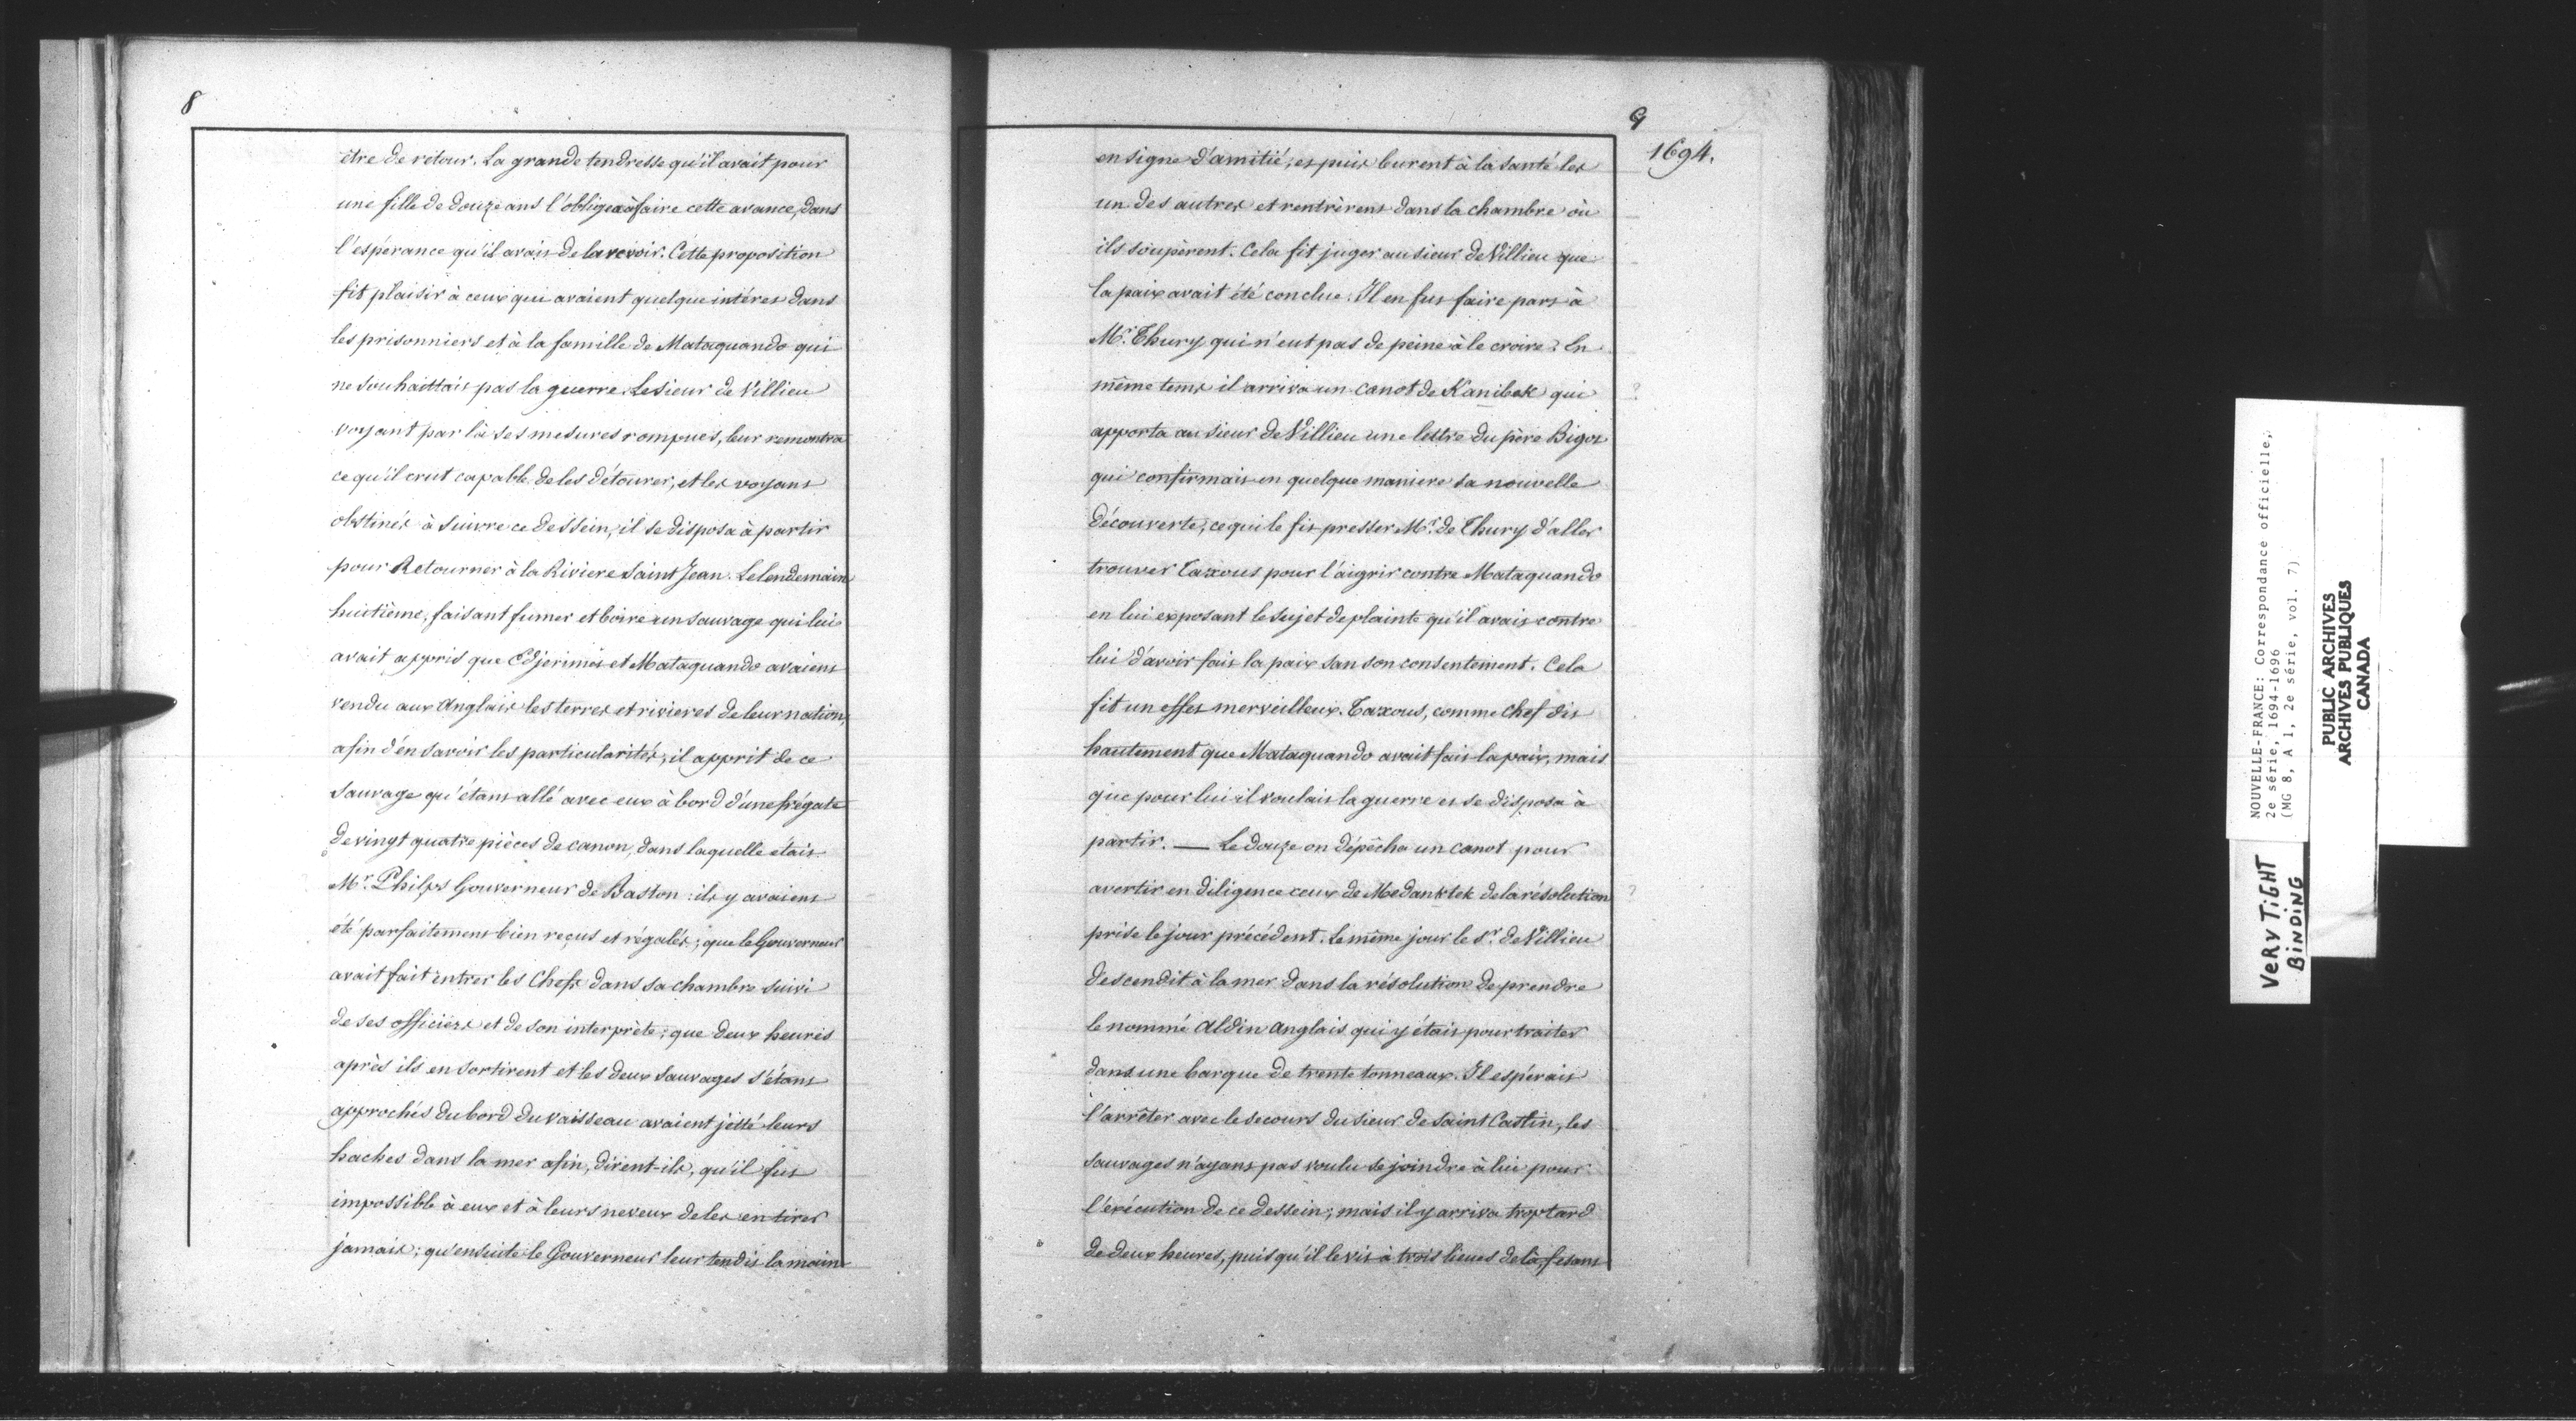 8
être de retour. La grande tendresse qu'il avait pour
une fille de douze ans l'obligea à faire cette avance, dans
l'espérance qu'il avait de la revoir. Cette proposition
fit plaisir à ceux qui avaient quelque intéret dans
les prisonniers et à la famille de Mataquando qui
ne souhaittait pas la guerre. Le sieur de Villieu
voyant par là ses mesures rompues, leur remontra
ce qu'il crut capable de les détourer, et les voyant
obstinés à suivre ce dessein, il se disposa à partir
pour Retourner à la Riviere Saint Jean. Le lendemain
huitième, faisant fumer et boire un sauvage qui lui
avait appris que Edjerimet et Mataquando avaient
vendu aux Anglais les terres et rivieres de leur nation,
afin d'en savoir les particularités, il apprit de ce
Sauvage qu'étant allé avec eux à bord d'une frégate
de vingt quatre pièces de canon, dans laquelle était
Mr. Philps Gouverneur de Baston : ils y avaient
été parfaitement bien reçus et régalés ; que le Gouverneur
avait fait entrer les Chefs dans sa chambre suivi
de ses officiers et de son interprète ; que deux heures
après ils en sortirent et les deux Sauvages s'étant
approchés du bord du vaisseau avaient jetté leurs
haches dans la mer afin, dirent-ils, qu'il fut
impossible à eux et à leurs neveux de les en tirer
jamais ; qu'ensuite le Gouverneur leur tendit la main
9
1694.
en signe d'amitié, et puis burent à la santé les
un des autres et rentrèrent dans la chambre où
ils soupèrent. Cela fit juger au sieur de Villieu que
la paix avait été conclue. Il en fut faire part à
Mr. Thury qui n'eut pas de peine à le croire. En
même tems il arriva un canot de Kanibek qui
?
apporta au sieur de Villieu une lettre du père Bigot
qui confirmait en quelque maniere sa nouvelle
découverte, ce qui le fit presser Mr. de Thury d'aller
trouver Taxous pour l'aigrir contre Mataquando
en lui exposant le sujet de plainte qu'il avait contre
lui d'avoir fait la paix san son consentement. Cela
fit un effet merveilleux. Taxous, comme Chef dit
hautement que Mataquando avait fait la paix, mais
que pour lui il voulait la guerre et se disposa à
partir. — Le douze on dépêcha un canot pour
avertir en diligence ceux de Medanktek de la résolution
?
prise le jour précédent. Le même jour le Sr. de Villieu
descendit à la mer dans la résolution de prendre
le nommé Aldin Anglais qui y était pour traiter
dans une barque de trente tonneaux. Il espérait
l'arrêter avec le secours du sieur de Saint Castin, les
sauvages n'ayant pas voulu se joindre à lui pour
l'exécution de ce dessein ; mais il y arriva trop tard
de deux heures, puisqu'il le vit à trois lieues de là, fesant
NOUVELLE-FRANCE: Correspondance officielle,
2e série, 1694-1696
(MG 8, A 1, 2e série, vol. 7)
PUBLIC ARCHIVES
ARCHIVES PUBLIQUES
CANADA
VERY TIGHT
BINDING